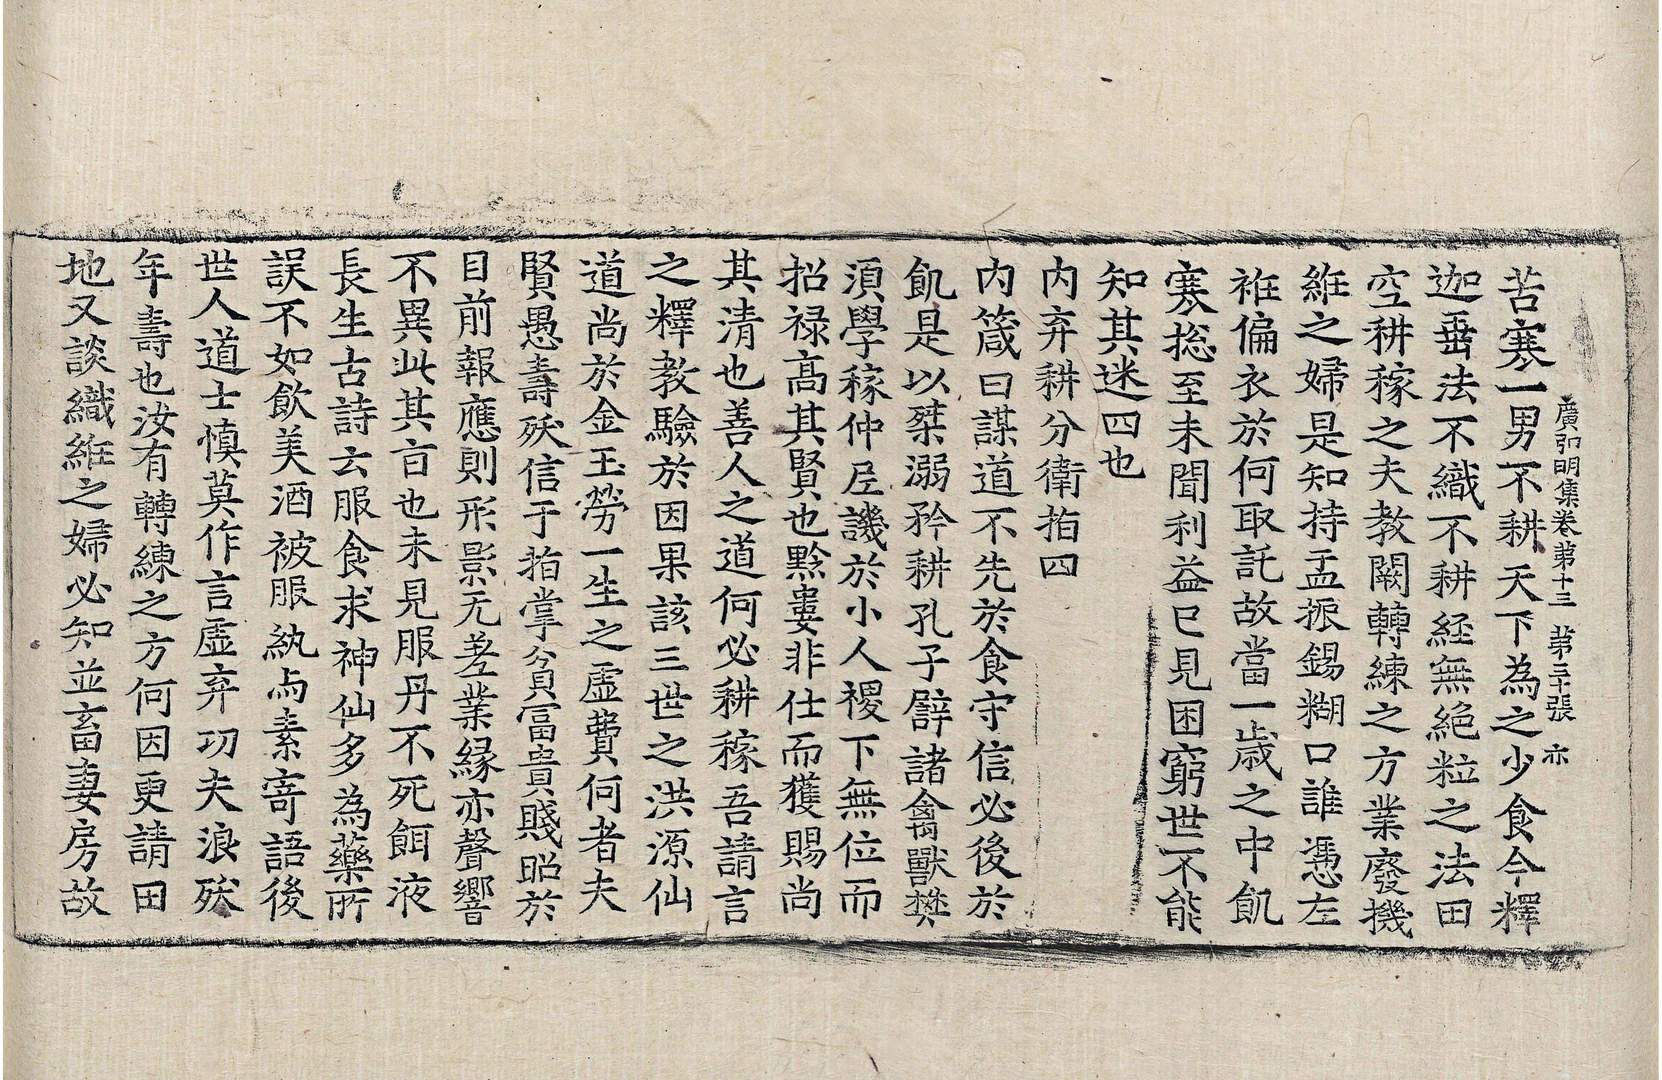 廣弘明集卷第十三　第三十張　亦
苦寒一男不耕天下為之少食今釋
迦垂法不織不耕經無絕粒之法田
空耕稼之夫教闕轉練之方業廢機
絍之婦是知持盂振錫糊口誰憑左
袵偏衣於何取託故當一歲之中飢
寒揔至未聞利益已見困窮世不能
知其迷四也
内弃耕分衛指四
内箴曰謀道不先於食守信必後於
飢是以桀溺矜耕孔子譬諸禽獸樊
湏學稼仲𡰱譏於小人稷下無位而
招禄髙其賢也黔婁非仕而獲賜尚
其清也善人之道何必耕稼吾請言
之釋教驗於因果該三世之洪源仙
道尚於金玉勞一生之虛費何者夫
賢愚壽殀信于指掌貧冨貴賤昭於
目前報應則形影无差業緣亦聲響
不異此其言也未見服丹不死餌液
長生古詩云服食求神仙多為藥所
誤不如飲美酒被服紈与素寄語後
世人道士慎莫作言虛弃功夫浪殀
年壽也汝有轉練之方何因更請田
地又談織絍之婦必知並畜妻房故